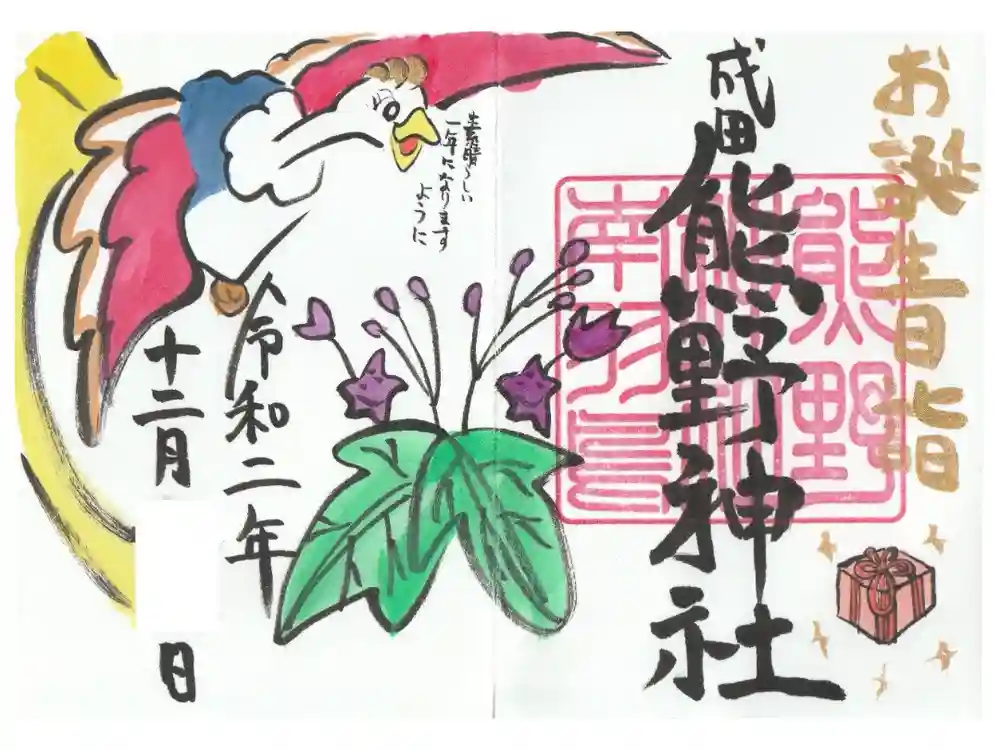 お誕生日詣
成田
熊野神社
熊野
神社
南羽鳥
素晴らしい
一年になります
ように
令和二年
十二月 日